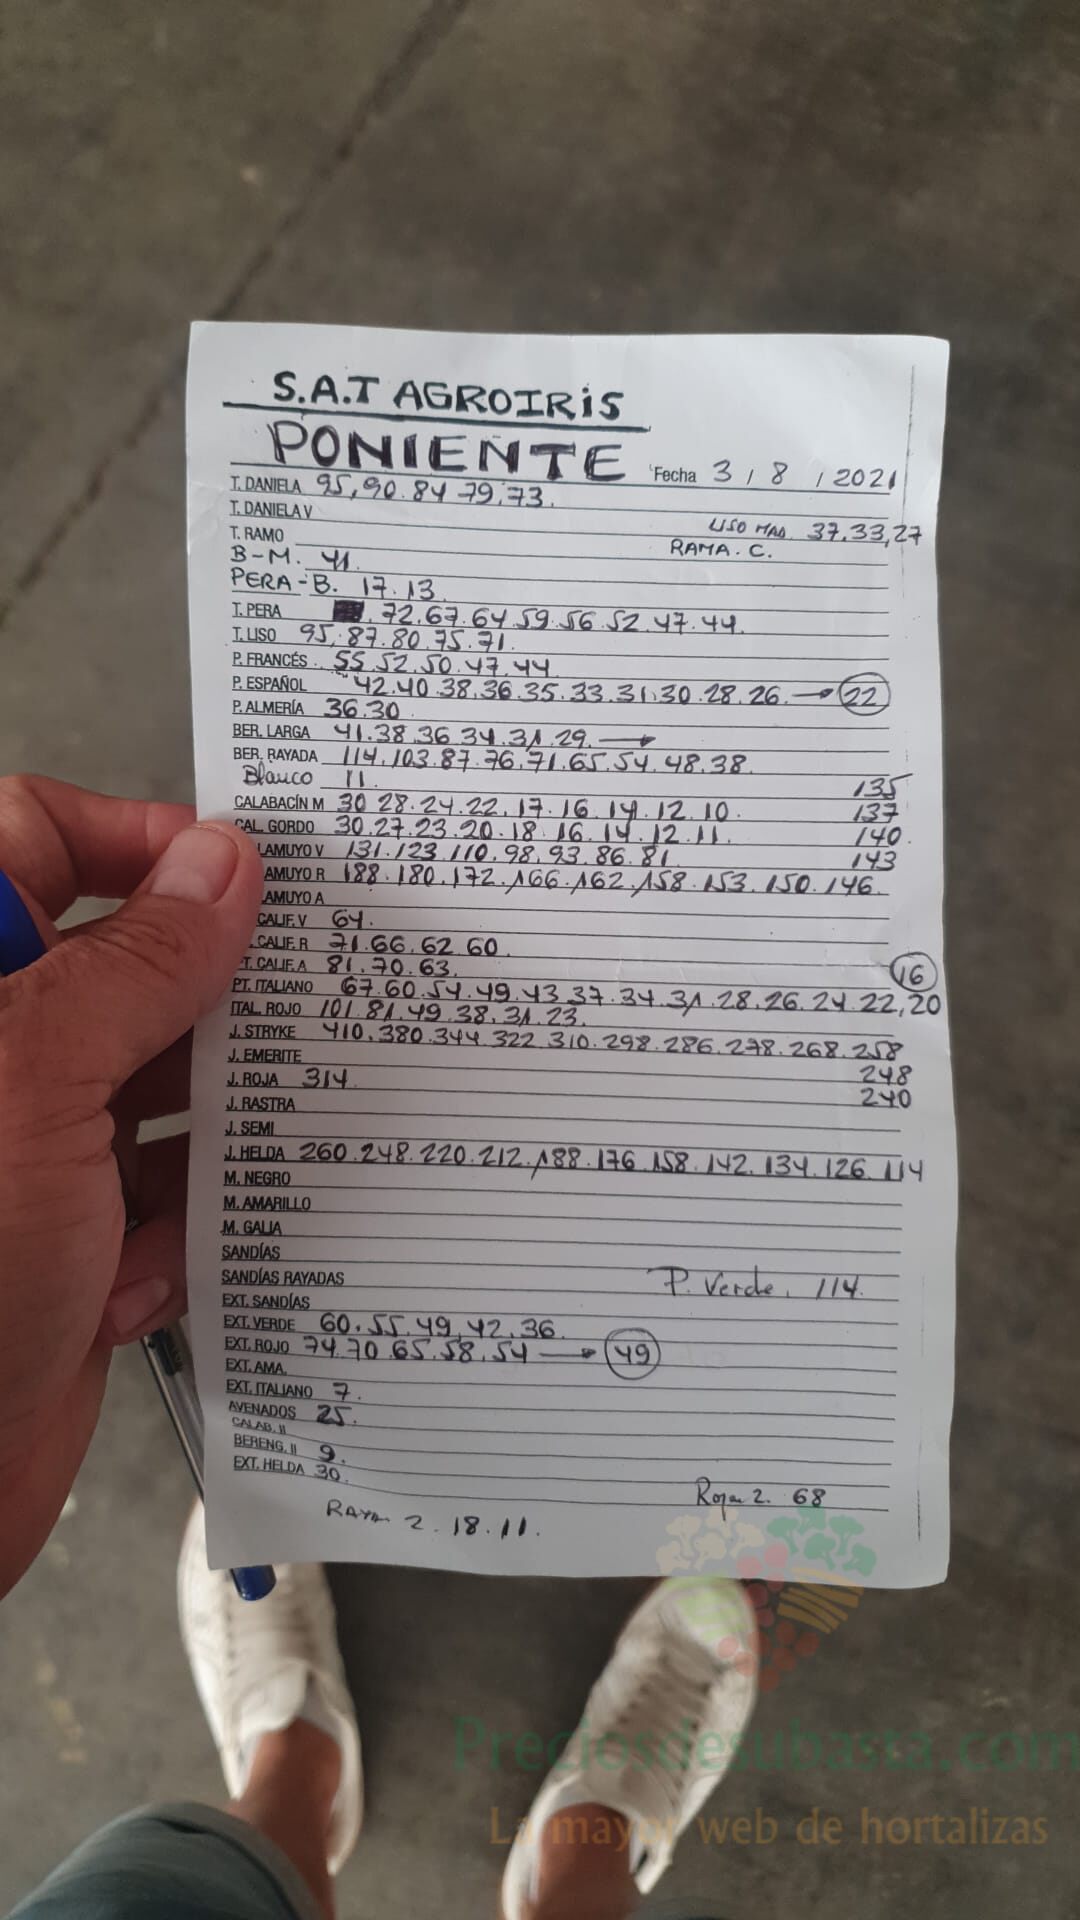 S.A.T AGROIRIS
PONIENTE Fecha 3 / 8 / 2021
T. DANIELA 95, 90. 84 79, 73.
T. DANELA V
LISO MAD. 37. 33, 27
T. RAMO
RAMA. C.
B-M. 41.
PERA-B. 17. 13.
T. PERA 72. 67. 64. 59. 56. 52. 47. 44.
T. LISO 95, 87. 80. 75. 71.
P. FRANCÉS 55. 52. 50. 47. 44
P. ESPAÑOL 42. 40. 38. 36. 35. 33. 31. 30. 28. 26. → 22
P. ALMERÍA 36. 30.
BER. LARGA 41. 38. 36. 34. 31. 29. →
BER. RAYADA 114. 103. 87. 76. 71. 65. 54. 48. 38.
Blanco 11. 135
CALABACÍN M 30 28. 24. 22. 17. 16. 14. 12. 10. 137
CAL. GORDO 30. 27. 23. 20. 18. 16. 14. 12. 11. 140
LAMUYO V 131. 123. 110. 98. 93. 86. 81. 143
AMUYO R 188. 180. 172. 166. 162. 158. 153. 150. 146.
AMUYO A
CALIF. V 64.
CALIF. R 71. 66. 62. 60.
T. CALIF. A 81. 70. 63. 16
PT. ITALIANO 67. 60. 54. 49. 43. 37. 34. 31. 28. 26. 24. 22, 20
ITAL. ROJO 101. 81. 49. 38. 31. 23.
J. STRYKE 410. 380. 344. 322. 310. 298. 286. 278. 268. 258
J. EMERITE 248
J. ROJA 314. 240
J. RASTRA
J. SEMI
J. HELDA 260. 248. 220. 212. 188. 176. 158. 142. 134. 126. 114
M. NEGRO
M. AMARILLO
M. GALIA
SANDÍAS
SANDÍAS RAYADAS P. Verde. 114.
EXT. SANDÍAS
EXT. VERDE 60. 55. 49. 42. 36.
EXT. ROJO 74. 70. 65. 58. 54 → 49
EXT. AMA.
EXT. ITALIANO 7.
AVENADOS 25.
CALAB. II
BERENG. II 9.
EXT. HELDA 30.
Roja 2. 68
RAYA 2. 18. 11.
Preciosdesubasta.com
La mayor web de hortalizas